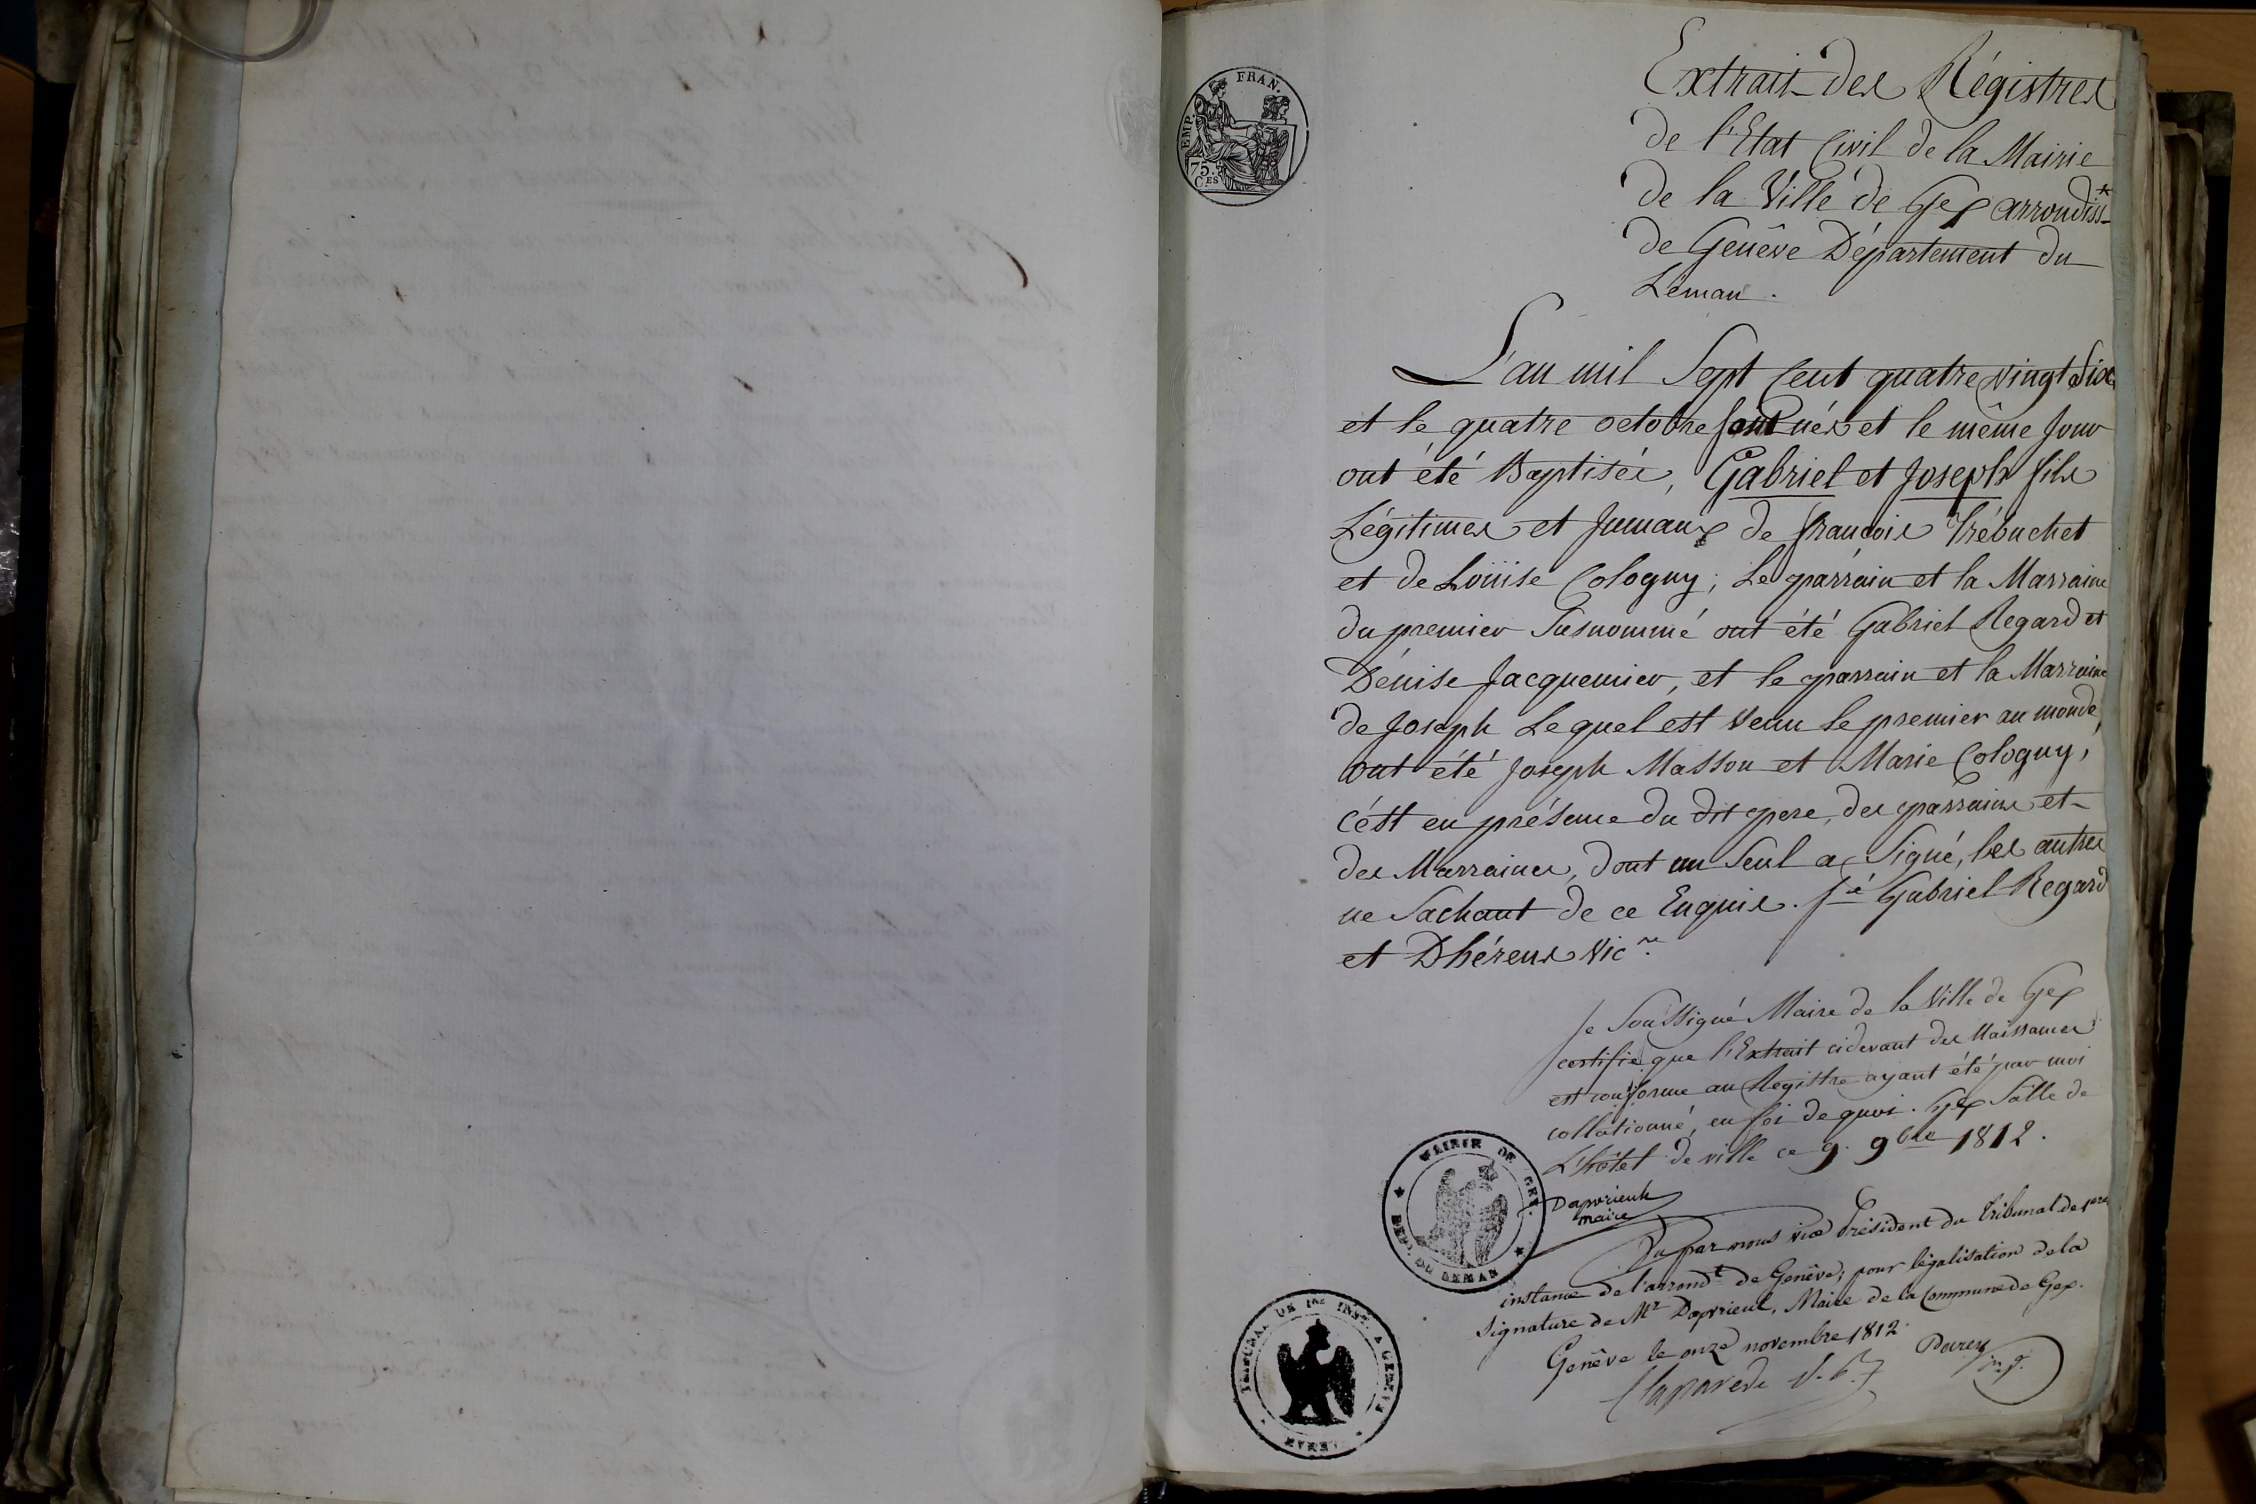 EMP. FRAN.
75.
CES
Extrait des Régistres
de l'Etat Civil de la Mairie
de la Ville de Gex arrondiss.t
de Genêve Département du
Léman.
L'an mil Sept Cent quatre vingt Six
et le quatre octobre sont nés et le même Jour
ont été Baptisés, Gabriel et Joseph fils
Légitimes et Jumaux de francois Trébuchet
et de Loüise Cologny; Le parrain et la Marraine
du premier Susnommé ont été Gabriel Regard et
Dénise Jacquemier, et le parrain et la Marraine
de Joseph Lequel est venu le premier au monde,
ont été Joseph Masson et Marie Cologny,
c'est en présence du dit pere, des parrains et
des Marraines, dont un Seul a Signé, les autres
ne Sachant de ce Enquis. s.é Gabriel Regard
et Dhérens Vic.re
Je Soussigné Maire de la Ville de Gex
certifie que l'Extrait cidevant des Naissances
est conforme au Registre ayant été par moi
collationné, en foi de quoi. Gex Salle de
L'hôtel de ville ce 9. 9bre 1812.
MAIRIE DE GEX.
DEPT. DU LEMAN
Maire
Vu par nous vice Président du Tribunal de 1ere
instance de l'arrond.t de Genêve, pour légalisation de la
Signature de Mr Daprieul, Maire de la Commune de Gex.
Genêve le onze novembre 1812.
TRIBUNAL DE 1RE INST. A GENEVE
Claparede V. P.